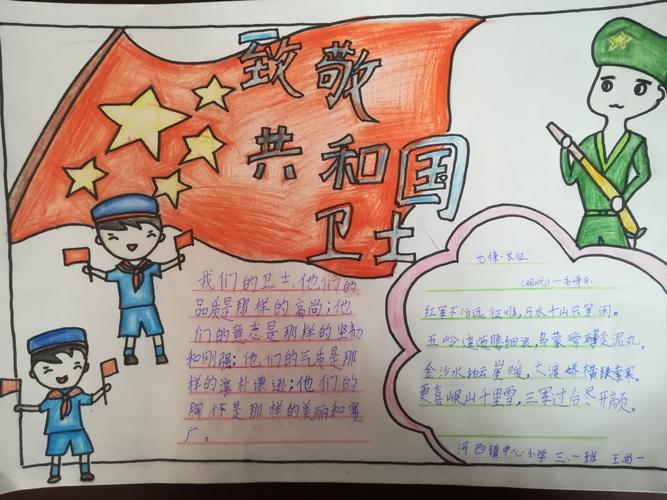 致敬
共和国
卫士
我们的卫士,他们的
品质是那样的高尚;他
们的意志是那样的坚韧
和刚强;他们的气质是那
样的淳朴谦逊;他们的
胸怀是那样的美丽和宽
广。
七律·长征
(现代)—毛泽东
红军不怕远征难,万水千山只等闲。
五岭逶迤腾细浪,乌蒙磅礴走泥丸。
金沙水拍云崖暖,大渡桥横铁索寒。
更喜岷山千里雪,三军过后尽开颜。
河西镇中心小学 三.一班 王尚一